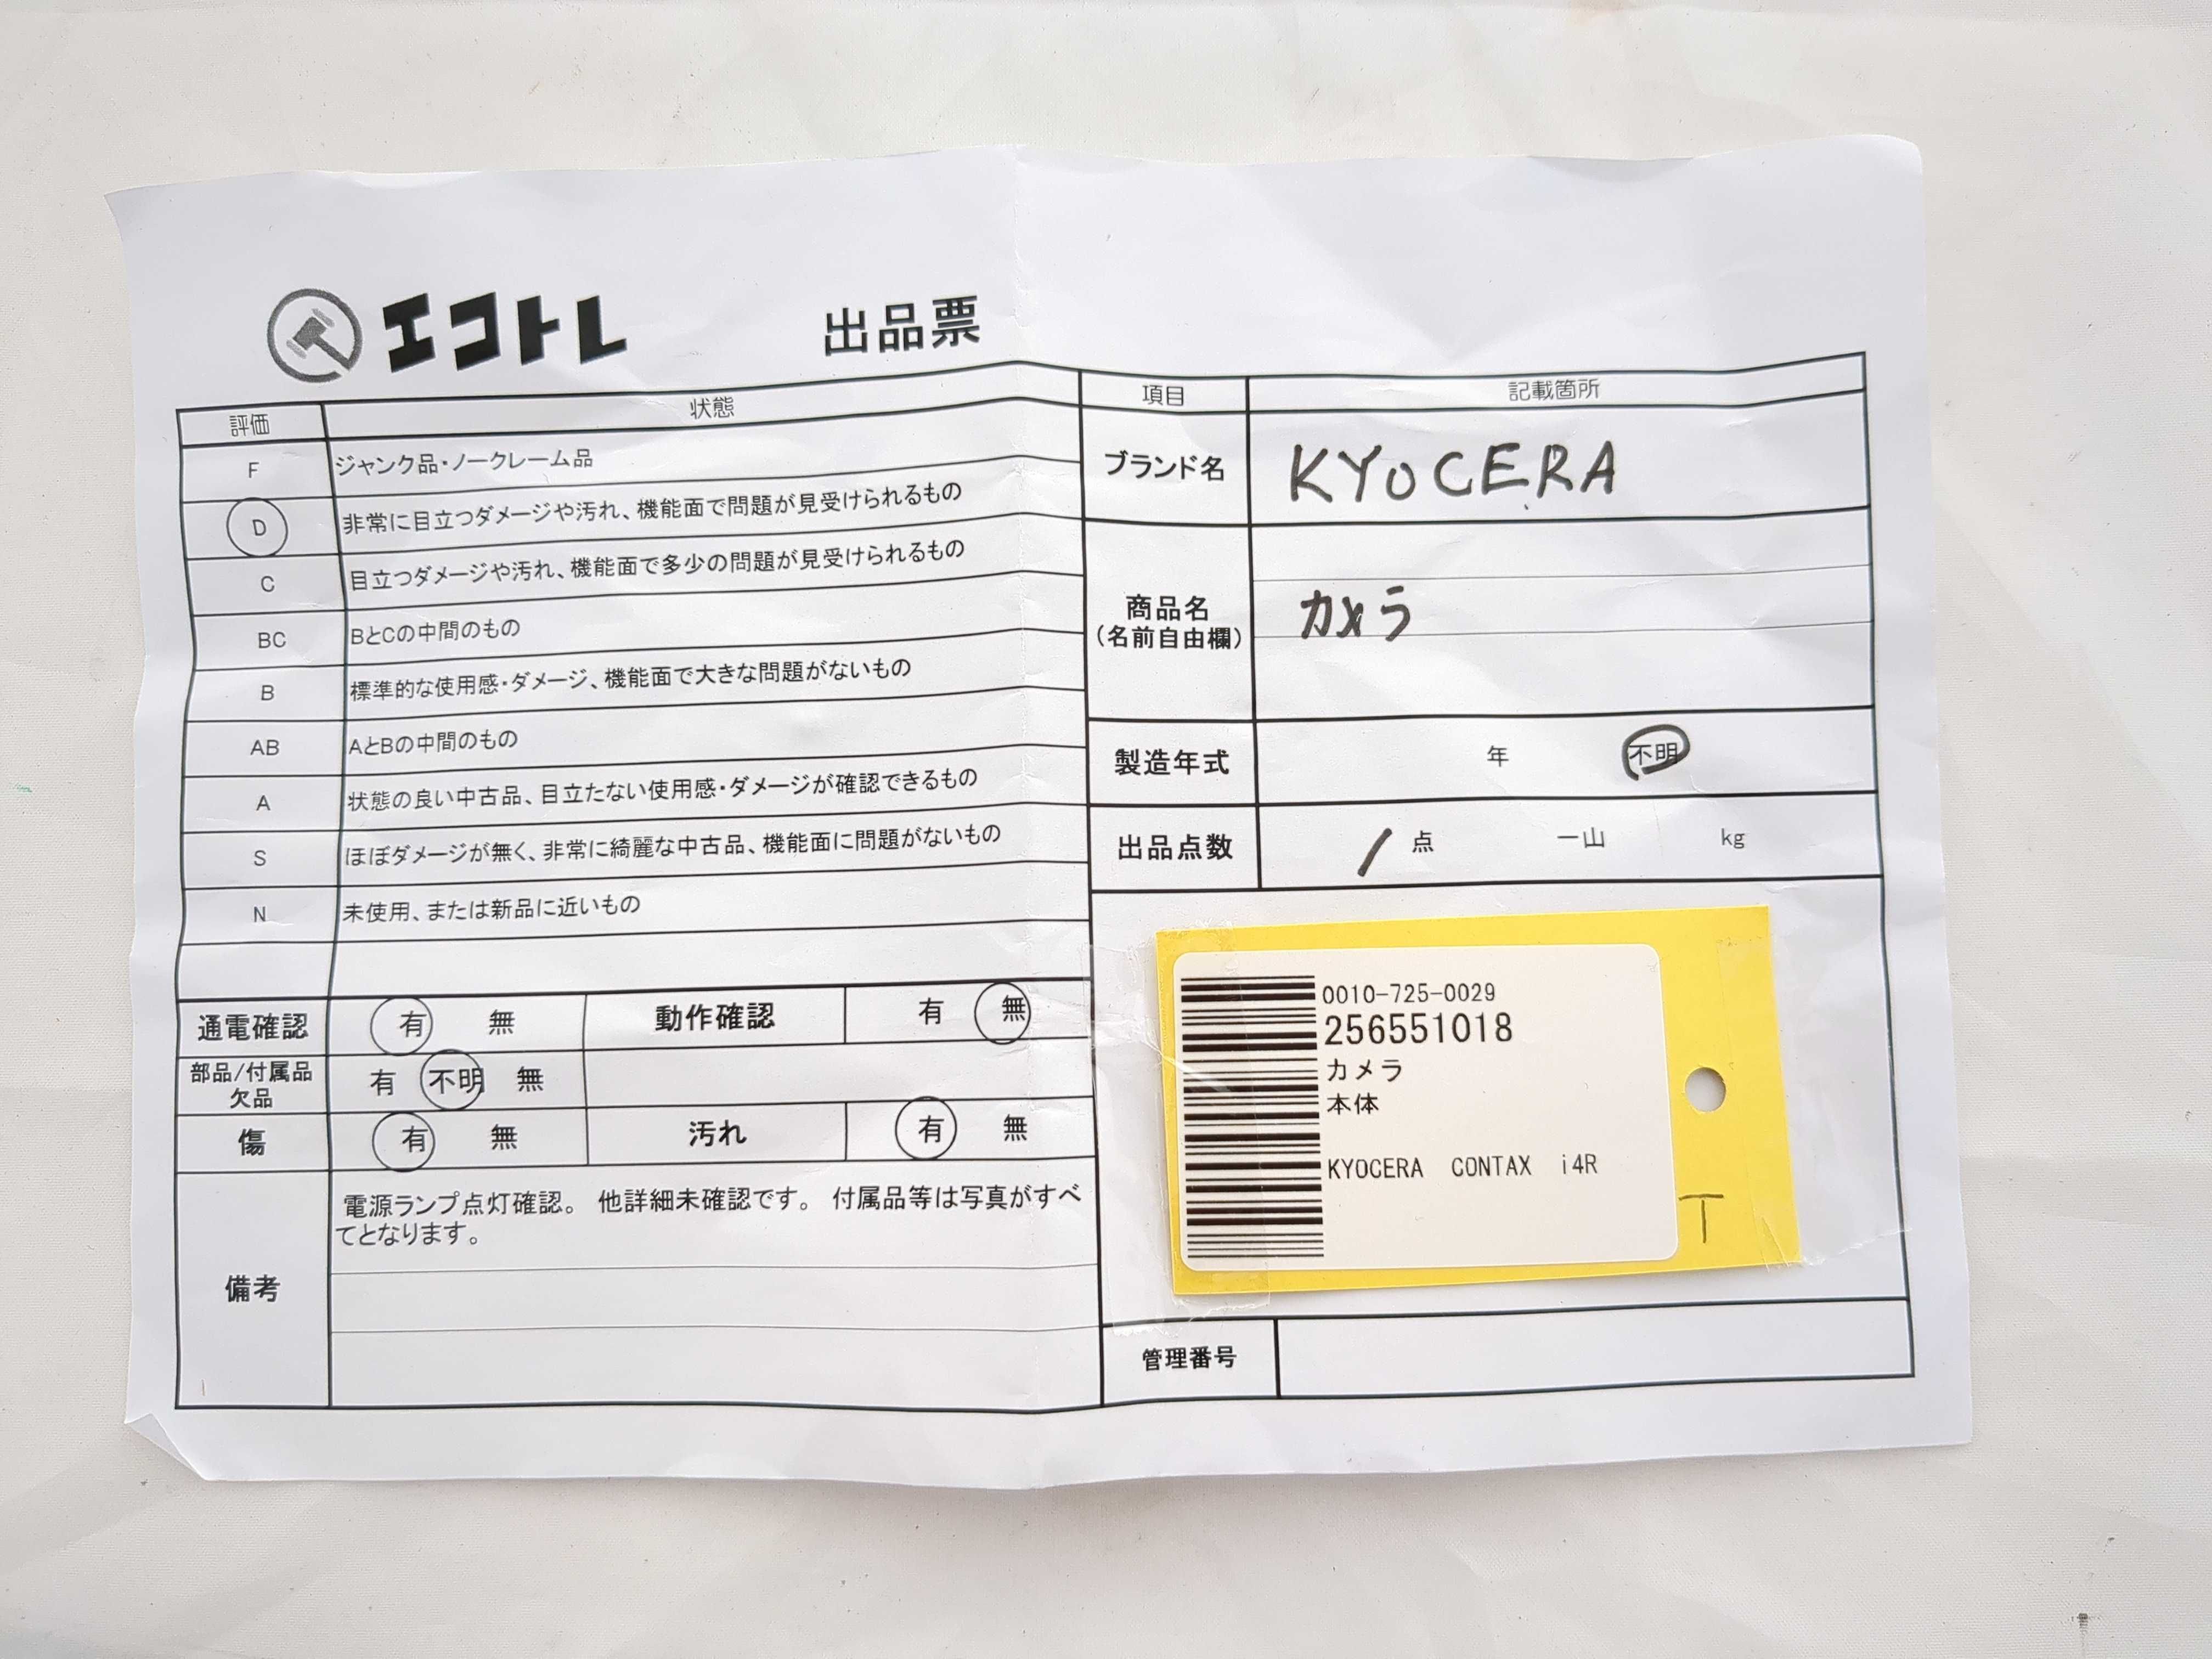 エコトレ
出品票
評価 状態
F ジャンク品・ノークレーム品
D 非常に目立つダメージや汚れ、機能面で問題が見受けられるもの
C 目立つダメージや汚れ、機能面で多少の問題が見受けられるもの
BC BとCの中間のもの
B 標準的な使用感・ダメージ、機能面で大きな問題がないもの
AB AとBの中間のもの
A 状態の良い中古品、目立たない使用感・ダメージが確認できるもの
S ほぼダメージが無く、非常に綺麗な中古品、機能面に問題がないもの
N 未使用、または新品に近いもの
通電確認 有 無 動作確認 有 無
部品/付属品
欠品
有 不明 無
傷 有 無 汚れ 有 無
備考
電源ランプ点灯確認。 他詳細未確認です。 付属品等は写真がすべ
てとなります。
項目 記載箇所
ブランド名 KYOCERA
商品名
(名前自由欄)
カメラ
製造年式 年 不明
出品点数 1 点 一山 kg
0010-725-0029
256551018
カメラ
本体
KYOCERA CONTAX i4R
T
管理番号